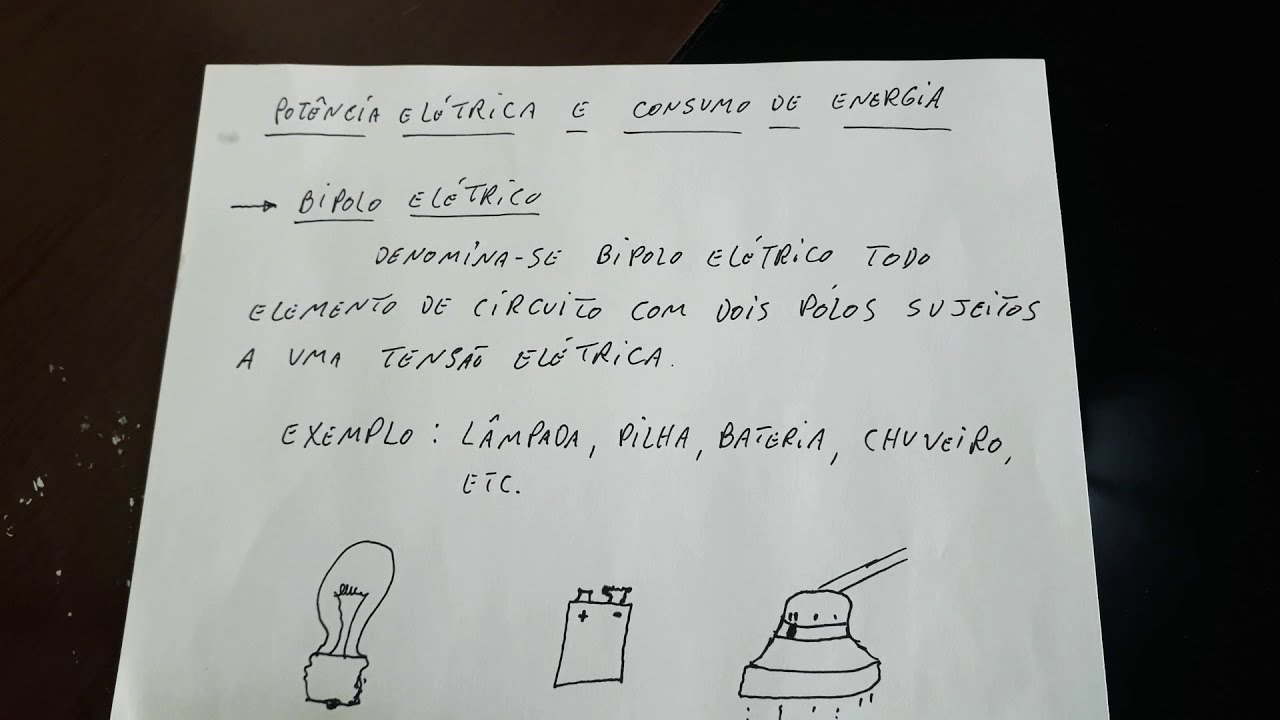 POTÊNCIA ELÉTRICA E CONSUMO DE ENERGIA
→ BIPOLO ELÉTRICO
DENOMINA-SE BIPOLO ELÉTRICO TODO
ELEMENTO DE CIRCUITO COM DOIS PÓLOS SUJEITOS
A UMA TENSÃO ELÉTRICA.
EXEMPLO: LÂMPADA, PILHA, BATERIA, CHUVEIRO,
ETC.
+ -